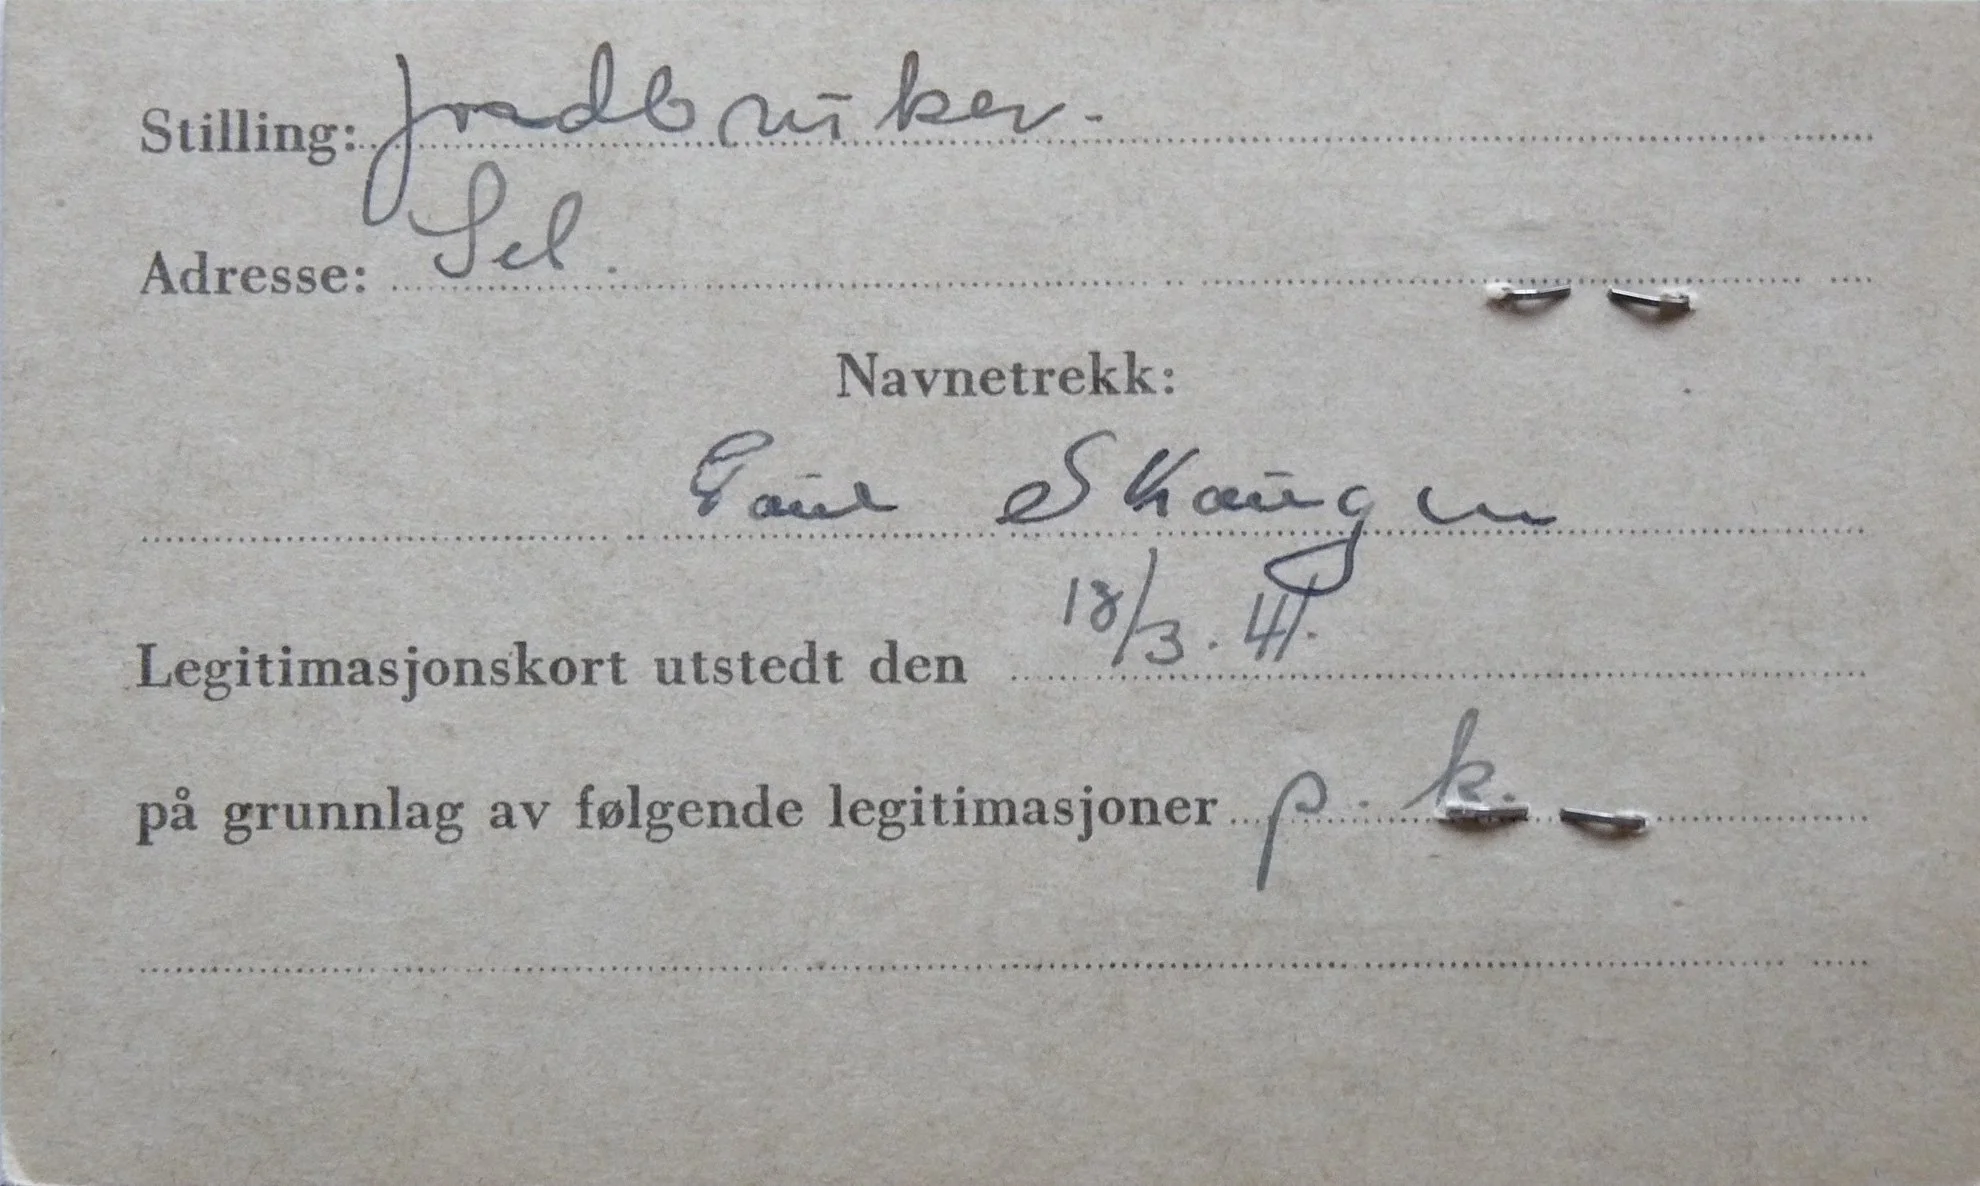 Stilling: jordbruker.
Adresse: Sel.
Navnetrekk:
Paul Skaugen
Legitimasjonskort utstedt den 18/3. 41.
på grunnlag av følgende legitimasjoner p. k.